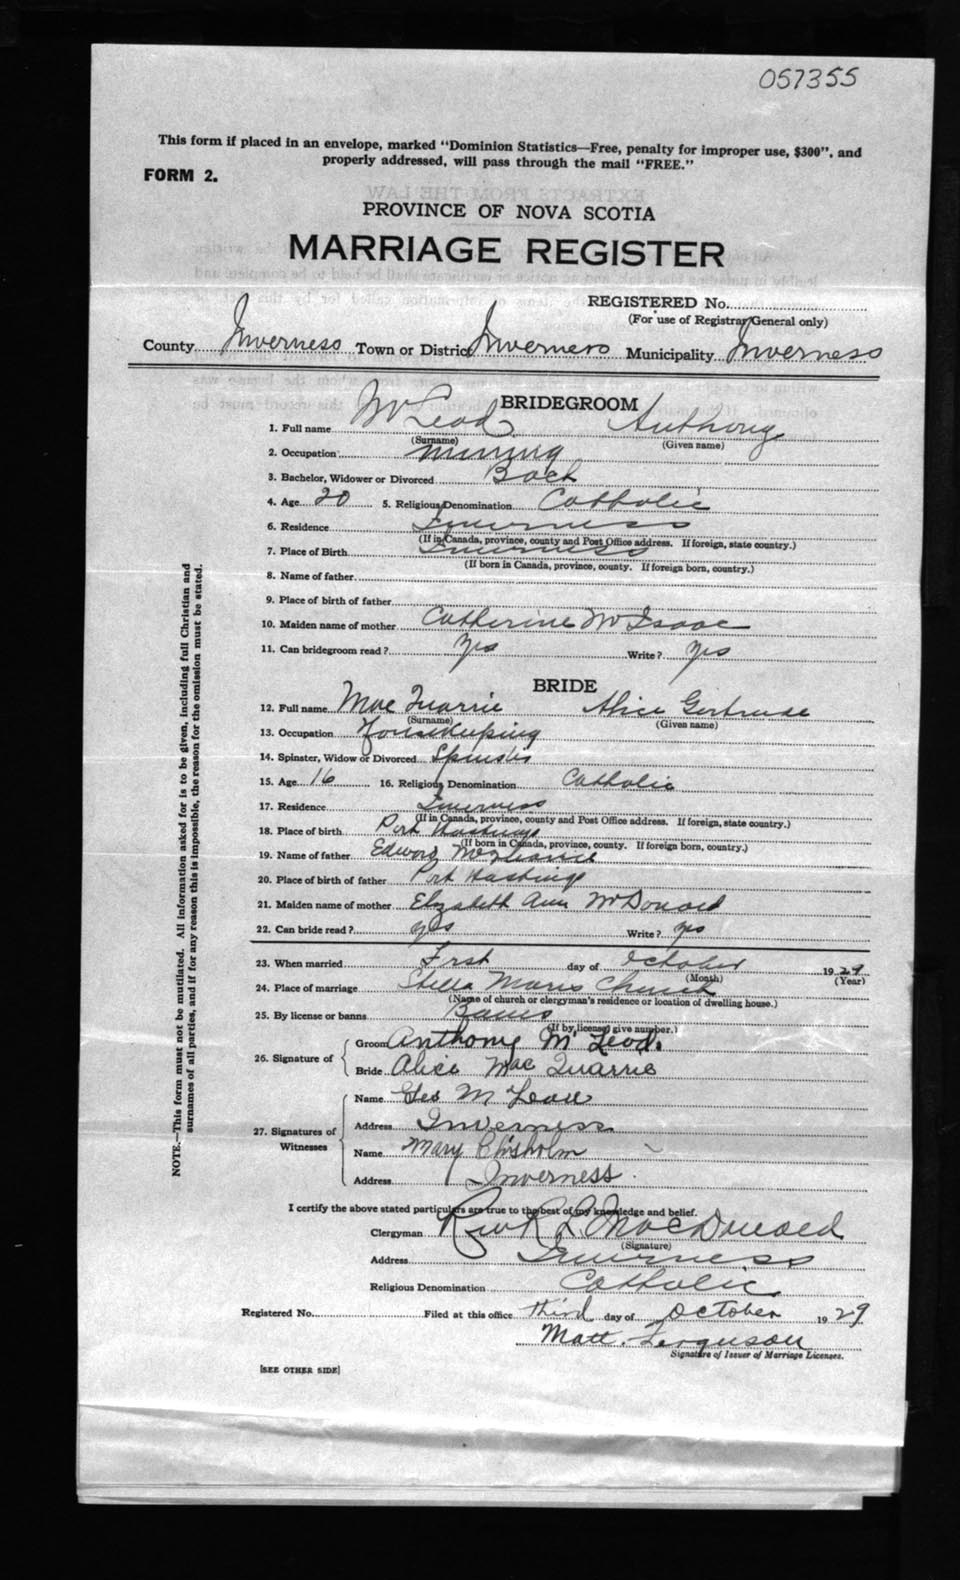 057355
This form if placed in an envelope, marked "Dominion Statistics—Free, penalty for improper use, $300", and
properly addressed, will pass through the mail "FREE."
FORM 2.
PROVINCE OF NOVA SCOTIA
MARRIAGE REGISTER
REGISTERED No.
(For use of Registrar General only)
County Inverness Town or District Inverness Municipality Inverness
BRIDEGROOM
1. Full name McLeod Anthony
(Surname) (Given name)
2. Occupation Mining
3. Bachelor, Widower or Divorced Bach
4. Age 20 5. Religious Denomination Catholic
6. Residence Inverness
(If in Canada, province, county and Post Office address. If foreign, state country.)
7. Place of Birth Inverness
(If born in Canada, province, county. If foreign born, country.)
8. Name of father
9. Place of birth of father
10. Maiden name of mother Catherine McIsaac
11. Can bridegroom read? Yes Write? Yes
BRIDE
12. Full name MacQuarrie Alice Gertrude
(Surname) (Given name)
13. Occupation Housekeeping
14. Spinster, Widow or Divorced Spinster
15. Age 16 16. Religious Denomination Catholic
17. Residence Inverness
(If in Canada, province, county and Post Office address. If foreign, state country.)
18. Place of birth Port Hastings
(If born in Canada, province, county. If foreign born, country.)
19. Name of father Edward McQuarrie
20. Place of birth of father Port Hastings
21. Maiden name of mother Elizabeth Ann McDonald
22. Can bride read? Yes Write? Yes
23. When married First day of October 1929
(Month) (Year)
24. Place of marriage Stella Maris Church
(Name of church or clergyman's residence or location of dwelling house.)
25. By license or banns Banns
(If by license, give number.)
26. Signature of Groom Anthony McLeod.
Bride Alice MacQuarrie
27. Signatures of Witnesses Name Geo McLeod
Address Inverness
Name Mary Chisholm
Address Inverness
I certify the above stated particulars are true to the best of my knowledge and belief.
Clergyman Rev R L MacDonald
(Signature)
Address Inverness
Religious Denomination Catholic
Registered No. Filed at this office third day of October 1929
Matt. Ferguson
Signature of Issuer of Marriage Licenses.
[SEE OTHER SIDE]
NOTE.—This form must not be mutilated. All information asked for is to be given, including full Christian and
surnames of all parties, and if for any reason this is impossible, the reason for the omission must be stated.